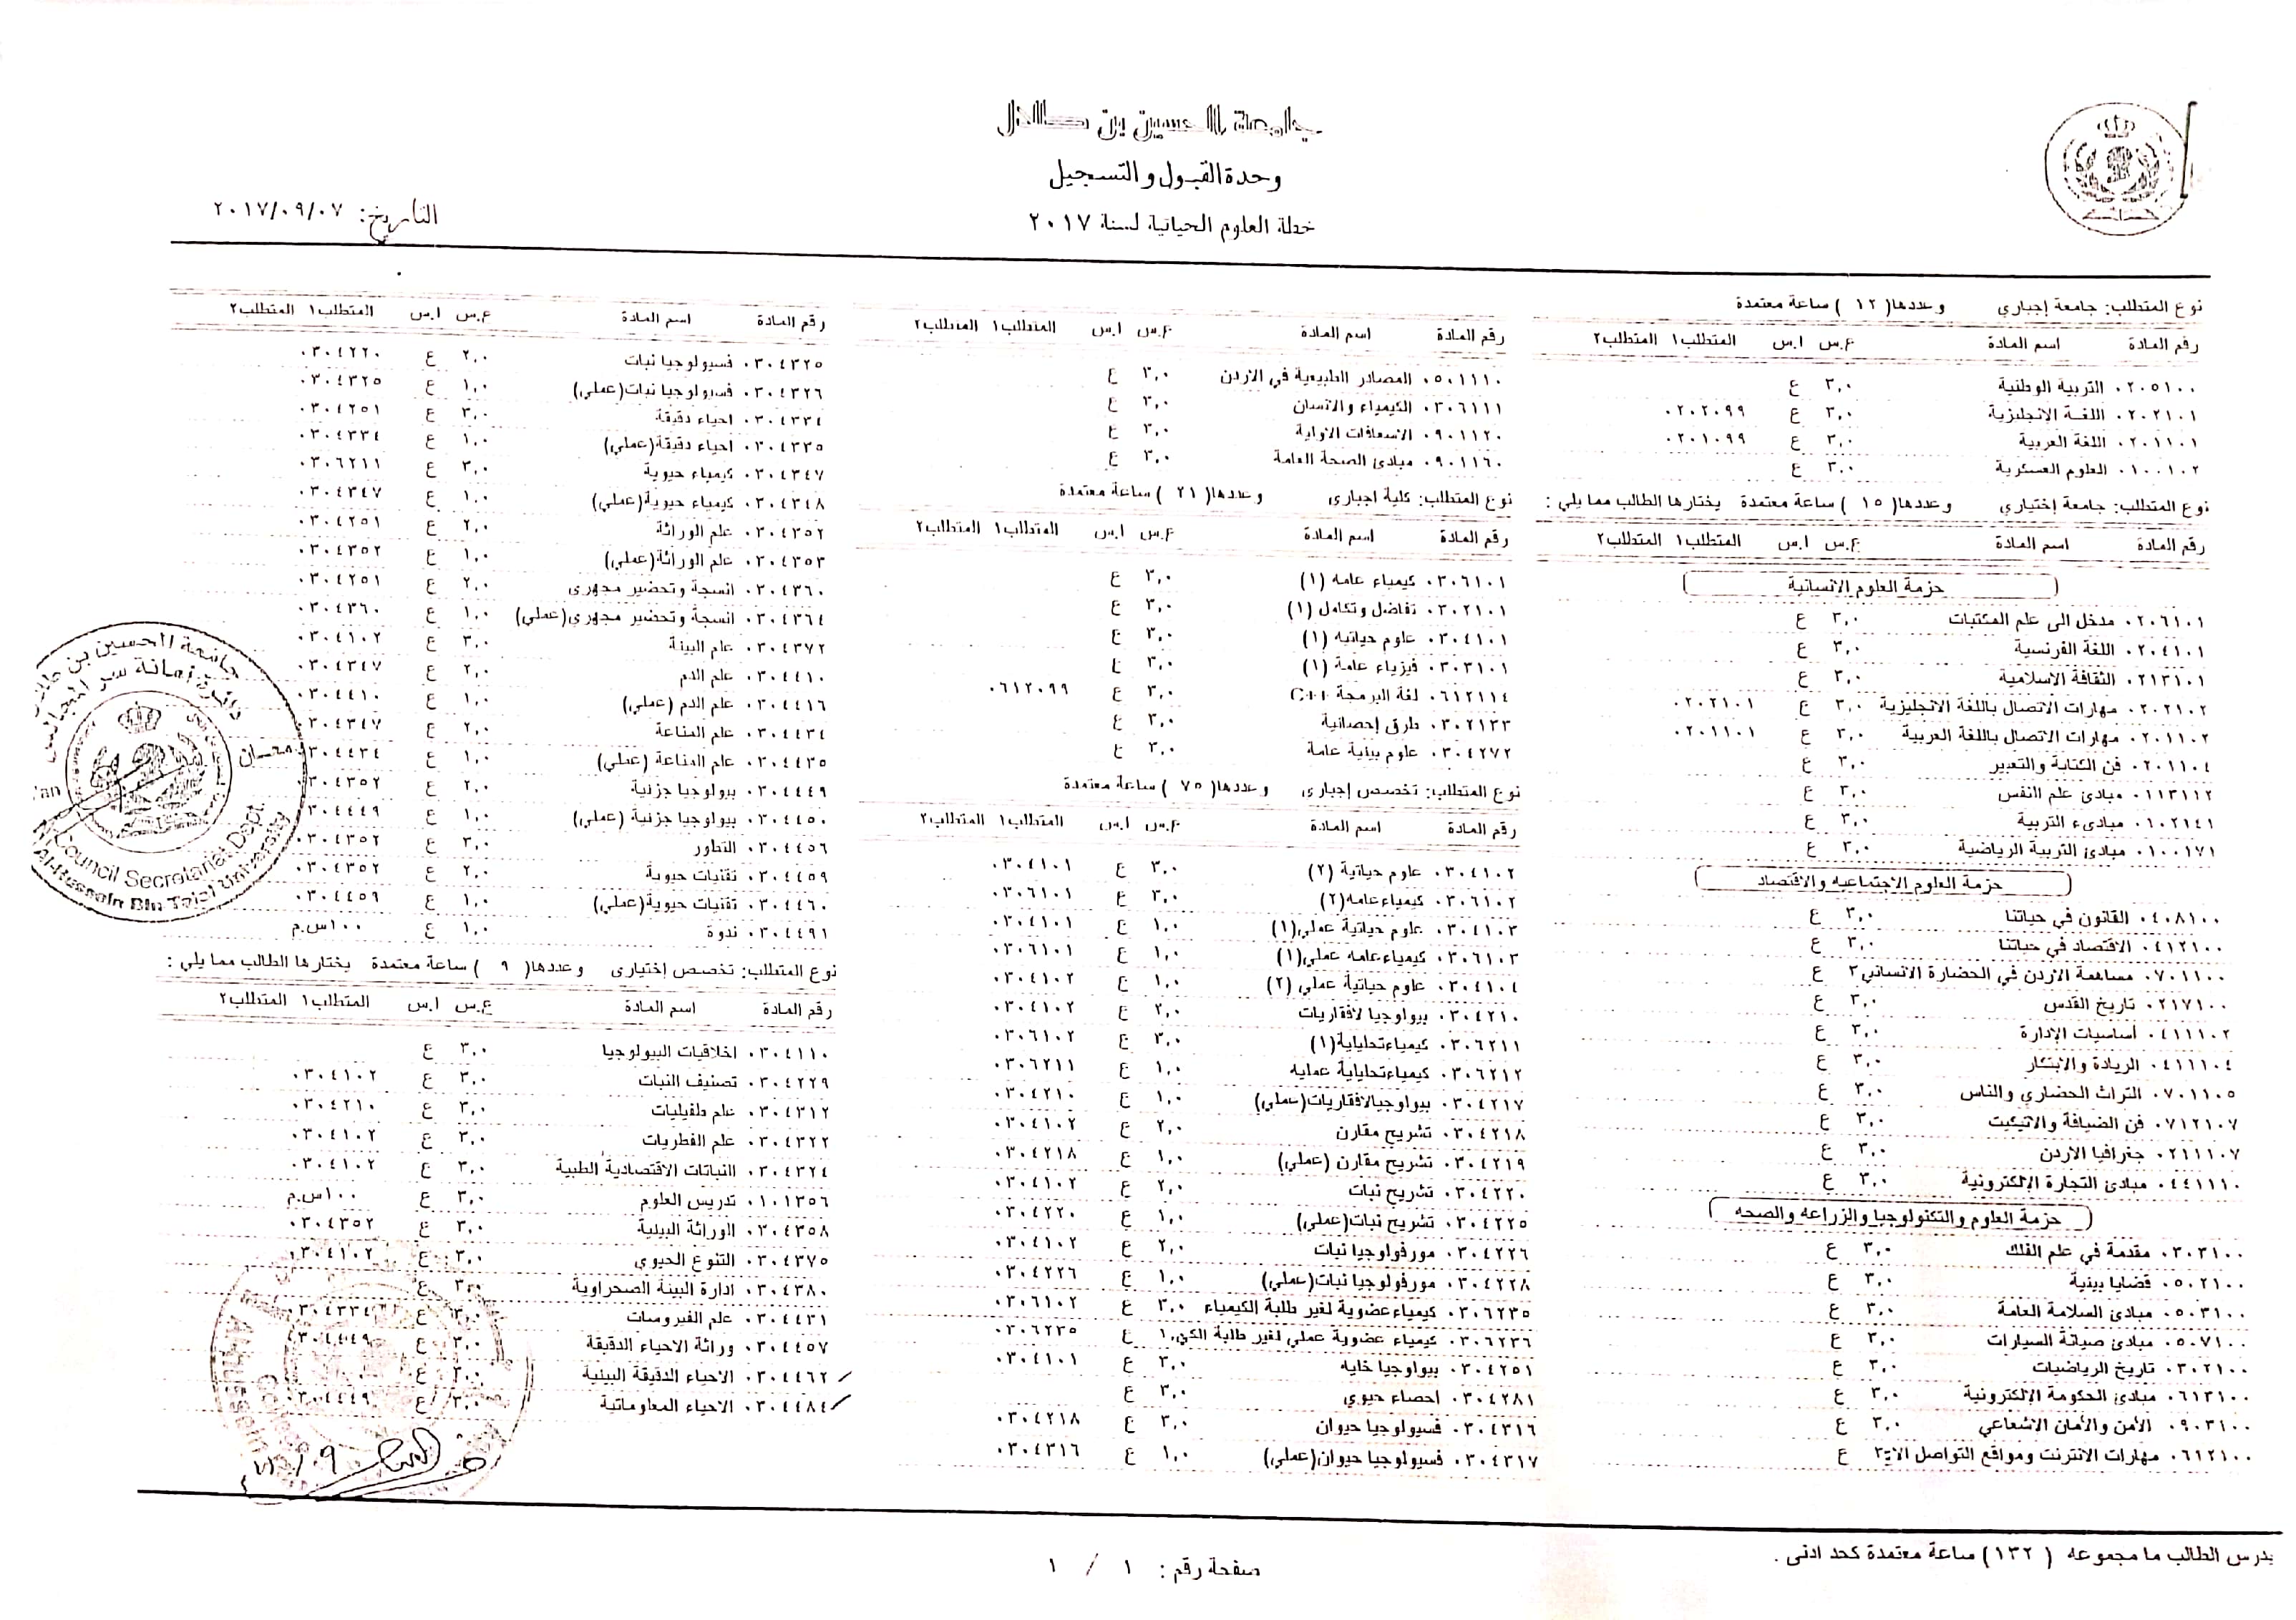 جامعة الحسين بن طلال
وحدة القبول والتسجيل
خطة العلوم الحياتية لسنة ٢٠١٧
التاريخ: ٢٠١٧/٠٩/٠٧
نوع المتطلب: جامعة إجباري وعددها( ١٢ ) ساعة معتمدة
رقم المادة اسم المادة س.ع س.ا المتطلب١ المتطلب٢
٠٢٠٥١٠٠ التربية الوطنية ٣,٠ ع
٠٢٠٢١٠١ اللغة الإنجليزية ٣,٠ ع ٠٢٠٢٠٩٩
٠٢٠١١٠١ اللغة العربية ٣,٠ ع ٠٢٠١٠٩٩
٠١٠٠١٠٢ العلوم العسكرية ٣,٠ ع
نوع المتطلب: جامعة إختياري وعددها( ١٥ ) ساعة معتمدة يختارها الطالب مما يلي :
رقم المادة اسم المادة س.ع س.ا المتطلب١ المتطلب٢
حزمة العلوم الانسانية
٠٢٠٦١٠١ مدخل الى علم المكتبات ٣,٠ ع
٠٢٠٤١٠١ اللغة الفرنسية ٣,٠ ع
٠٢١٣١٠١ الثقافة الاسلامية ٣,٠ ع
٠٢٠٢١٠٢ مهارات الاتصال باللغة الانجليزية ٣,٠ ع ٠٢٠٢١٠١
٠٢٠١١٠٢ مهارات الاتصال باللغة العربية ٣,٠ ع ٠٢٠١١٠١
٠٢٠١١٠٤ فن الكتابة والتعبير ٣,٠ ع
٠١١٣١١٢ مبادئ علم النفس ٣,٠ ع
٠١٠٢١٤١ مبادىء التربية ٣,٠ ع
٠١٠٠١٧١ مبادئ التربية الرياضية ٣,٠ ع
حزمة العلوم الاجتماعيه والاقتصاد
٠٤٠٨١٠٠ القانون في حياتنا ٣,٠ ع
٠٤١٢١٠٠ الاقتصاد في حياتنا ٣,٠ ع
٠٧٠١١٠٠ مساهمة الاردن في الحضارة الانساني٣ ع
٠٢١٧١٠٠ تاريخ القدس ٣,٠ ع
٠٤١١١٠٢ أساسيات الإدارة ٣,٠ ع
٠٤١١١٠٤ الريادة والابتكار ٣,٠ ع
٠٧٠١١٠٥ التراث الحضاري والناس ٣,٠ ع
٠٧١٢١٠٧ فن الضيافة والاتيكيت ٣,٠ ع
٠٢١١١٠٧ جغرافيا الاردن ٣,٠ ع
٠٤٤١١١٠ مبادئ التجارة الإلكترونية ٣,٠ ع
حزمة العلوم والتكنولوجيا والزراعه والصحه
٠٣٠٣١٠٠ مقدمة في علم الفلك ٣,٠ ع
٠٥٠٢١٠٠ قضايا بيئية ٣,٠ ع
٠٥٠٣١٠٠ مبادئ السلامة العامة ٣,٠ ع
٠٥٠٧١٠٠ مبادئ صيانة السيارات ٣,٠ ع
٠٣٠٢١٠٠ تاريخ الرياضيات ٣,٠ ع
٠٦١٣١٠٠ مبادئ الحكومة الإلكترونية ٣,٠ ع
٠٩٠٣١٠٠ الأمن والأمان الاشعاعي ٣,٠ ع
٠٦١٢١٠٠ مهارات الانترنت ومواقع التواصل الاج٣ ع
رقم المادة اسم المادة س.ع س.ا المتطلب١ المتطلب٢
٠٥٠١١١٠ المصادر الطبيعية في الاردن ٣,٠ ع
٠٣٠٦١١١ الكيمياء والانسان ٣,٠ ع
٠٩٠١١٢٠ الاسعافات الاولية ٣,٠ ع
٠٩٠١١٦٠ مبادئ الصحة العامة ٣,٠ ع
نوع المتطلب: كلية اجباري وعددها( ٢١ ) ساعة معتمدة
رقم المادة اسم المادة س.ع س.ا المتطلب١ المتطلب٢
٠٣٠٦١٠١ كيمياء عامه (١) ٣,٠ ع
٠٣٠٢١٠١ تفاضل وتكامل (١) ٣,٠ ع
٠٣٠٤١٠١ علوم حياتيه (١) ٣,٠ ع
٠٣٠٣١٠١ فيزياء عامة (١) ٣,٠ ع
٠٦١٢١١٤ لغة البرمجة C++ ٣,٠ ع ٠٦١٢٠٩٩
٠٣٠٢١٣٣ طرق إحصائية ٣,٠ ع
٠٣٠٤٢٧٢ علوم بيئية عامة ٣,٠ ع
نوع المتطلب: تخصص إجباري وعددها( ٧٥ ) ساعة معتمدة
رقم المادة اسم المادة س.ع س.ا المتطلب١ المتطلب٢
٠٣٠٤١٠٢ علوم حياتية (٢) ٣,٠ ع ٠٣٠٤١٠١
٠٣٠٦١٠٢ كيمياء عامه(٢) ٣,٠ ع ٠٣٠٦١٠١
٠٣٠٤١٠٣ علوم حياتية عملي(١) ١,٠ ع ٠٣٠٤١٠١
٠٣٠٦١٠٣ كيمياء عامه عملي(١) ١,٠ ع ٠٣٠٦١٠١
٠٣٠٤١٠٤ علوم حياتية عملي (٢) ١,٠ ع ٠٣٠٤١٠٢
٠٣٠٤٢١٠ بيولوجيا لافقاريات ٢,٠ ع ٠٣٠٤١٠٢
٠٣٠٦٢١١ كيمياء تحليلية(١) ٣,٠ ع ٠٣٠٦١٠٢
٠٣٠٦٢١٢ كيمياء تحليلية عمليه ١,٠ ع ٠٣٠٦٢١١
٠٣٠٤٢١٧ بيولوجيا لافقاريات(عملي) ١,٠ ع ٠٣٠٤٢١٠
٠٣٠٤٢١٨ تشريح مقارن ٢,٠ ع ٠٣٠٤١٠٢
٠٣٠٤٢١٩ تشريح مقارن (عملي) ١,٠ ع ٠٣٠٤٢١٨
٠٣٠٤٢٢٠ تشريح نبات ٢,٠ ع ٠٣٠٤١٠٢
٠٣٠٤٢٢٥ تشريح نبات(عملي) ١,٠ ع ٠٣٠٤٢٢٠
٠٣٠٤٢٢٦ مورفولوجيا نبات ٢,٠ ع ٠٣٠٤١٠٢
٠٣٠٤٢٢٨ مورفولوجيا نبات(عملي) ١,٠ ع ٠٣٠٤٢٢٦
٠٣٠٦٢٣٥ كيمياء عضوية لغير طلبة الكيمياء ٣,٠ ع ٠٣٠٦١٠٢
٠٣٠٦٢٣٦ كيمياء عضوية عملي لغير طلبة الكي١,٠ ع ٠٣٠٦٢٣٥
٠٣٠٤٢٥١ بيولوجيا خليه ٣,٠ ع ٠٣٠٤١٠١
٠٣٠٤٢٨١ احصاء حيوي ٣,٠ ع
٠٣٠٤٣١٦ فسيولوجيا حيوان ٣,٠ ع ٠٣٠٤٢١٨
٠٣٠٤٣١٧ فسيولوجيا حيوان(عملي) ١,٠ ع ٠٣٠٤٣١٦
رقم المادة اسم المادة س.ع س.ا المتطلب١ المتطلب٢
٠٣٠٤٣٢٥ فسيولوجيا نبات ٢,٠ ع ٠٣٠٤٢٢٠
٠٣٠٤٣٢٦ فسيولوجيا نبات(عملي) ١,٠ ع ٠٣٠٤٣٢٥
٠٣٠٤٣٣٤ احياء دقيقة ٣,٠ ع ٠٣٠٤٢٥١
٠٣٠٤٣٣٥ احياء دقيقة(عملي) ١,٠ ع ٠٣٠٤٣٣٤
٠٣٠٤٣٤٧ كيمياء حيوية ٣,٠ ع ٠٣٠٦٢١١
٠٣٠٤٣٤٨ كيمياء حيوية(عملي) ١,٠ ع ٠٣٠٤٣٤٧
٠٣٠٤٣٥٢ علم الوراثة ٢,٠ ع ٠٣٠٤٢٥١
٠٣٠٤٣٥٣ علم الوراثة(عملي) ١,٠ ع ٠٣٠٤٣٥٢
٠٣٠٤٣٦٠ انسجة وتحضير مجهري ٢,٠ ع ٠٣٠٤٢٥١
٠٣٠٤٣٦٤ انسجة وتحضير مجهري(عملي) ١,٠ ع ٠٣٠٤٣٦٠
٠٣٠٤٣٧٢ علم البيئة ٣,٠ ع ٠٣٠٤١٠٢
٠٣٠٤٤١٠ علم الدم ٢,٠ ع ٠٣٠٤٣٤٧
٠٣٠٤٤١٦ علم الدم (عملي) ١,٠ ع ٠٣٠٤٤١٠
٠٣٠٤٤٣٤ علم المناعة ٢,٠ ع ٠٣٠٤٣٤٧
٠٣٠٤٤٣٥ علم المناعة (عملي) ١,٠ ع ٠٣٠٤٤٣٤
٠٣٠٤٤٤٩ بيولوجيا جزئية ٢,٠ ع ٠٣٠٤٣٥٢
٠٣٠٤٤٥٠ بيولوجيا جزئية (عملي) ١,٠ ع ٠٣٠٤٤٤٩
٠٣٠٤٤٥٦ التطور ٣,٠ ع ٠٣٠٤٣٥٢
٠٣٠٤٤٥٩ تقنيات حيوية ٢,٠ ع ٠٣٠٤٣٥٢
٠٣٠٤٤٦٠ تقنيات حيوية(عملي) ١,٠ ع ٠٣٠٤٤٥٩
٠٣٠٤٤٩١ ندوة ١,٠ ع ١٠٠س.م
نوع المتطلب: تخصص إختياري وعددها( ٩ ) ساعة معتمدة يختارها الطالب مما يلي :
رقم المادة اسم المادة س.ع س.ا المتطلب١ المتطلب٢
٠٣٠٤١١٠ اخلاقيات البيولوجيا ٣,٠ ع
٠٣٠٤٢٢٩ تصنيف النبات ٣,٠ ع ٠٣٠٤١٠٢
٠٣٠٤٣١٢ علم طفيليات ٣,٠ ع ٠٣٠٤٢١٠
٠٣٠٤٣٢٢ علم الفطريات ٣,٠ ع ٠٣٠٤١٠٢
٠٣٠٤٣٢٤ النباتات الاقتصادية الطبية ٣,٠ ع ٠٣٠٤١٠٢
٠١٠١٣٥٦ تدريس العلوم ٣,٠ ع ١٠٠س.م
٠٣٠٤٣٥٨ الوراثة البيئية ٣,٠ ع ٠٣٠٤٣٥٢
٠٣٠٤٣٧٥ التنوع الحيوي ٣,٠ ع ٠٣٠٤١٠٢
٠٣٠٤٣٨٠ ادارة البيئة الصحراوية ٣,٠ ع
٠٣٠٤٤٣١ علم الفيروسات ٣,٠ ع ٠٣٠٤٣٣٤
٠٣٠٤٤٥٧ وراثة الاحياء الدقيقة ٣,٠ ع ٠٣٠٤٤٤٩
٠٣٠٤٤٦٢ الاحياء الدقيقة البيئية ٣,٠ ع
٠٣٠٤٤٨٤ الاحياء المعلوماتية ٣,٠ ع ٠٣٠٤٤٤٩
جامعة الحسين بن طلال
دائرة أمانة سر المجالس
معان
Council Secretariat Dept.
Al-Hussein Bin Talal University
يدرس الطالب ما مجموعه ( ١٣٢ ) ساعة معتمدة كحد ادنى .
صفحة رقم: ١ / ١